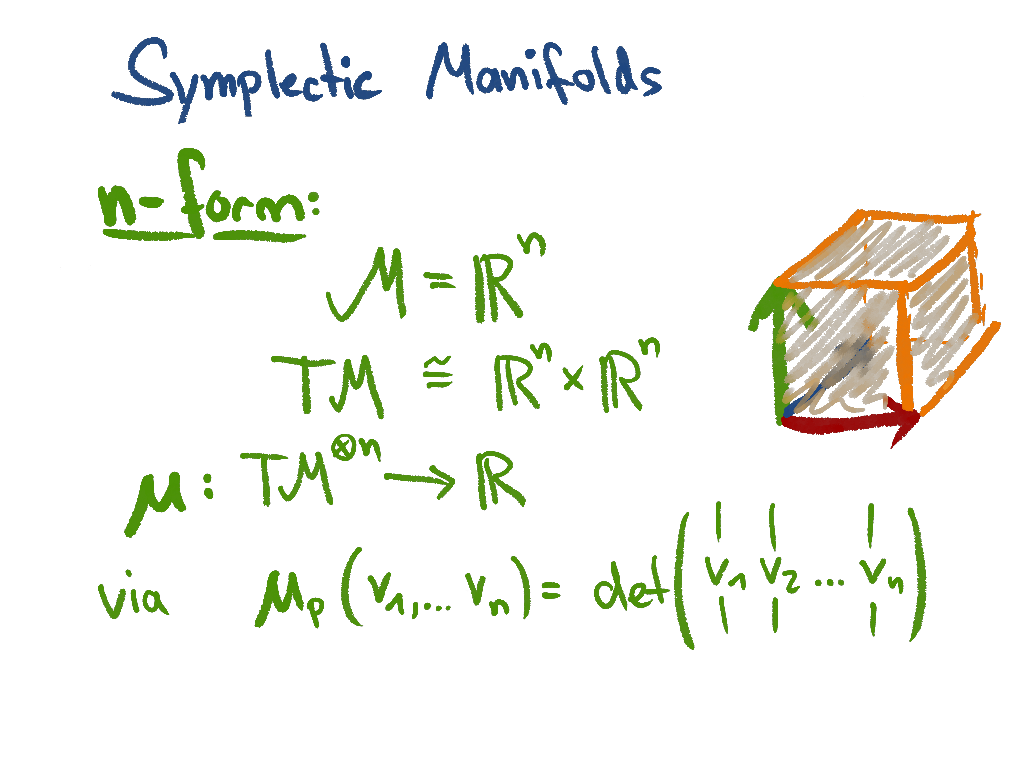 Symplectic Manifolds
n-form:
M = ℝⁿ
TM ≅ ℝⁿ × ℝⁿ
μ: TM^⊗n → ℝ
via μₚ(v₁,... vₙ) = det(v₁ v₂ ... vₙ)